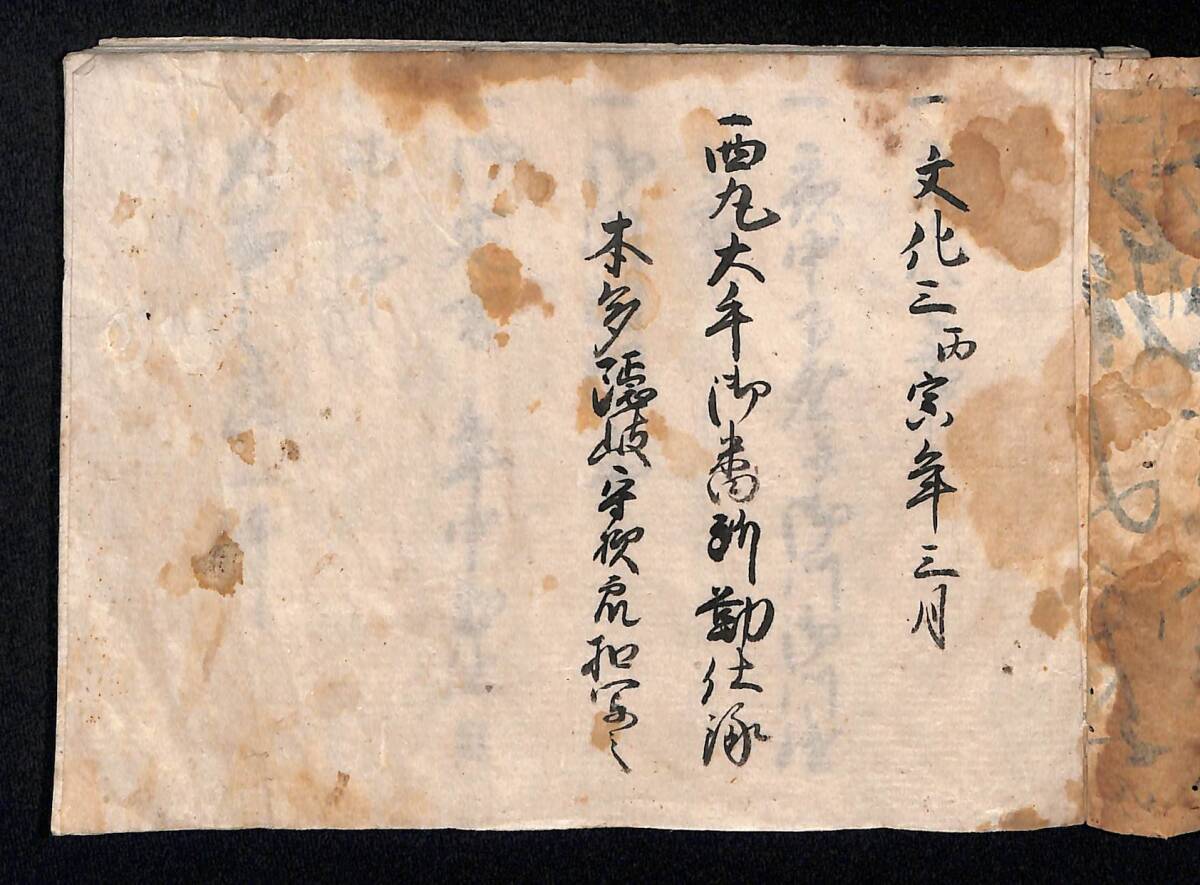 一文化三丙寅年三月
一西丸大手御番所勤仕録
本多隠岐守様衆扣写之